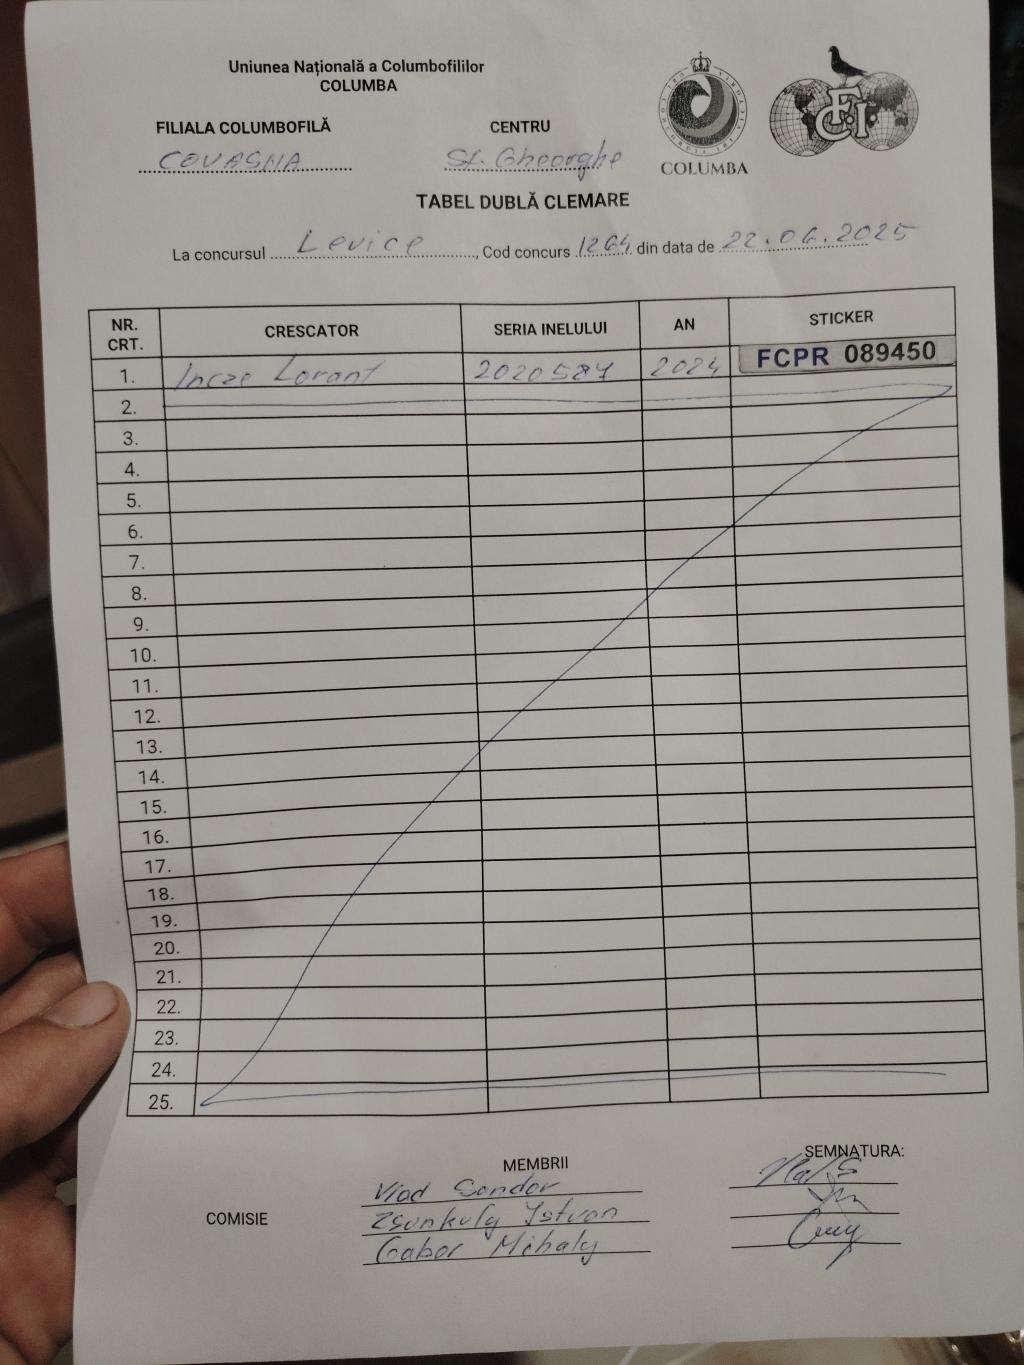 Uniunea Națională a Columbofililor
COLUMBA
FILIALA COLUMBOFILĂ
COVASNA
CENTRU
Sf. Gheorghe
COLUMBA
F.C.I.
TABEL DUBLĂ CLEMARE
La concursul Levice, Cod concurs 1264 din data de 22.06.2025
NR. CRT. CRESCATOR SERIA INELULUI AN STICKER
1. Incze Lorant 2020587 2024 FCPR 089450
2.
3.
4.
5.
6.
7.
8.
9.
10.
11.
12.
13.
14.
15.
16.
17.
18.
19.
20.
21.
22.
23.
24.
25.
MEMBRII
SEMNATURA:
COMISIE
Vlad Sandor
Zsunkuly Istvan
Gabor Mihaly